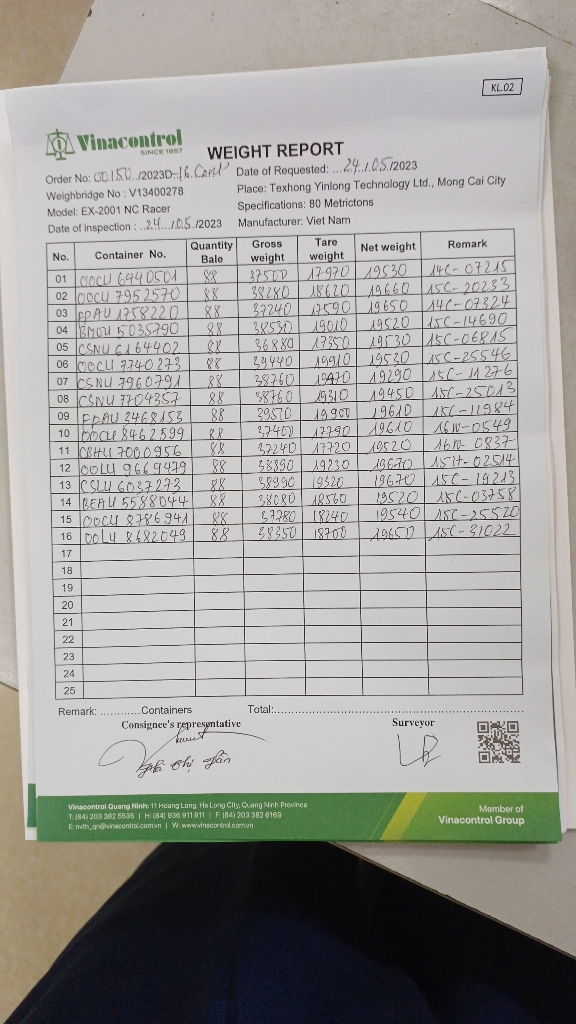 KL.02
Vinacontrol
SINCE 1957
WEIGHT REPORT
Order No: 00150/2023D-16.Cont
Date of Requested: ...24./.05./2023
Weighbridge No : V13400278
Place: Texhong Yinlong Technology Ltd., Mong Cai City
Model: EX-2001 NC Racer
Specifications: 80 Metrictons
Date of inspection : ..24../.05./2023
Manufacturer: Viet Nam
No. Container No. Quantity Bale Gross weight Tare weight Net weight Remark
01 OOCU 6440501 88 37500 17970 19530 14C-07215
02 OOCU 7952570 88 38280 18620 19660 15C-20233
03 FPAU 1758220 88 37240 17590 19650 14C-07324
04 BMOU 5035790 88 38530 19010 19520 15C-14690
05 CSNU 6164402 88 36880 17350 19530 15C-06815
06 OOCU 7740273 88 39440 19910 19530 15C-25546
07 CSNU 7960791 88 38760 19470 19290 15C-11276
08 CSNU 7704357 88 38760 19310 19450 15C-25013
09 FPAU 3468153 88 39510 19900 19610 15C-11984
10 OOCU 8462599 88 37400 17790 19610 16N-0549
11 CBHU 7000956 88 37240 17720 19520 16N-0837
12 OOLU 9669479 88 38890 19230 19670 15H-02514
13 CSLU 6037273 88 38990 19320 19670 15C-19213
14 BEAU 5588044 88 38080 18560 19520 15C-03758
15 OOCU 8786941 88 37780 18240 19540 15C-25520
16 OOLU 8682049 88 38350 18700 19650 15C-31022
17
18
19
20
21
22
23
24
25
Remark: ............Containers Total:..........................................................
Consignee's representative Surveyor
Vinacontrol Quang Ninh: 11 Hoang Long, Ha Long City, Quang Ninh Province
T: (84) 203 382 5535 | H: (84) 936 911 811 | F: (84) 203 382 6169
E: nvth_qn@vinacontrol.com.vn | W: www.vinacontrol.com.vn
Member of
Vinacontrol Group